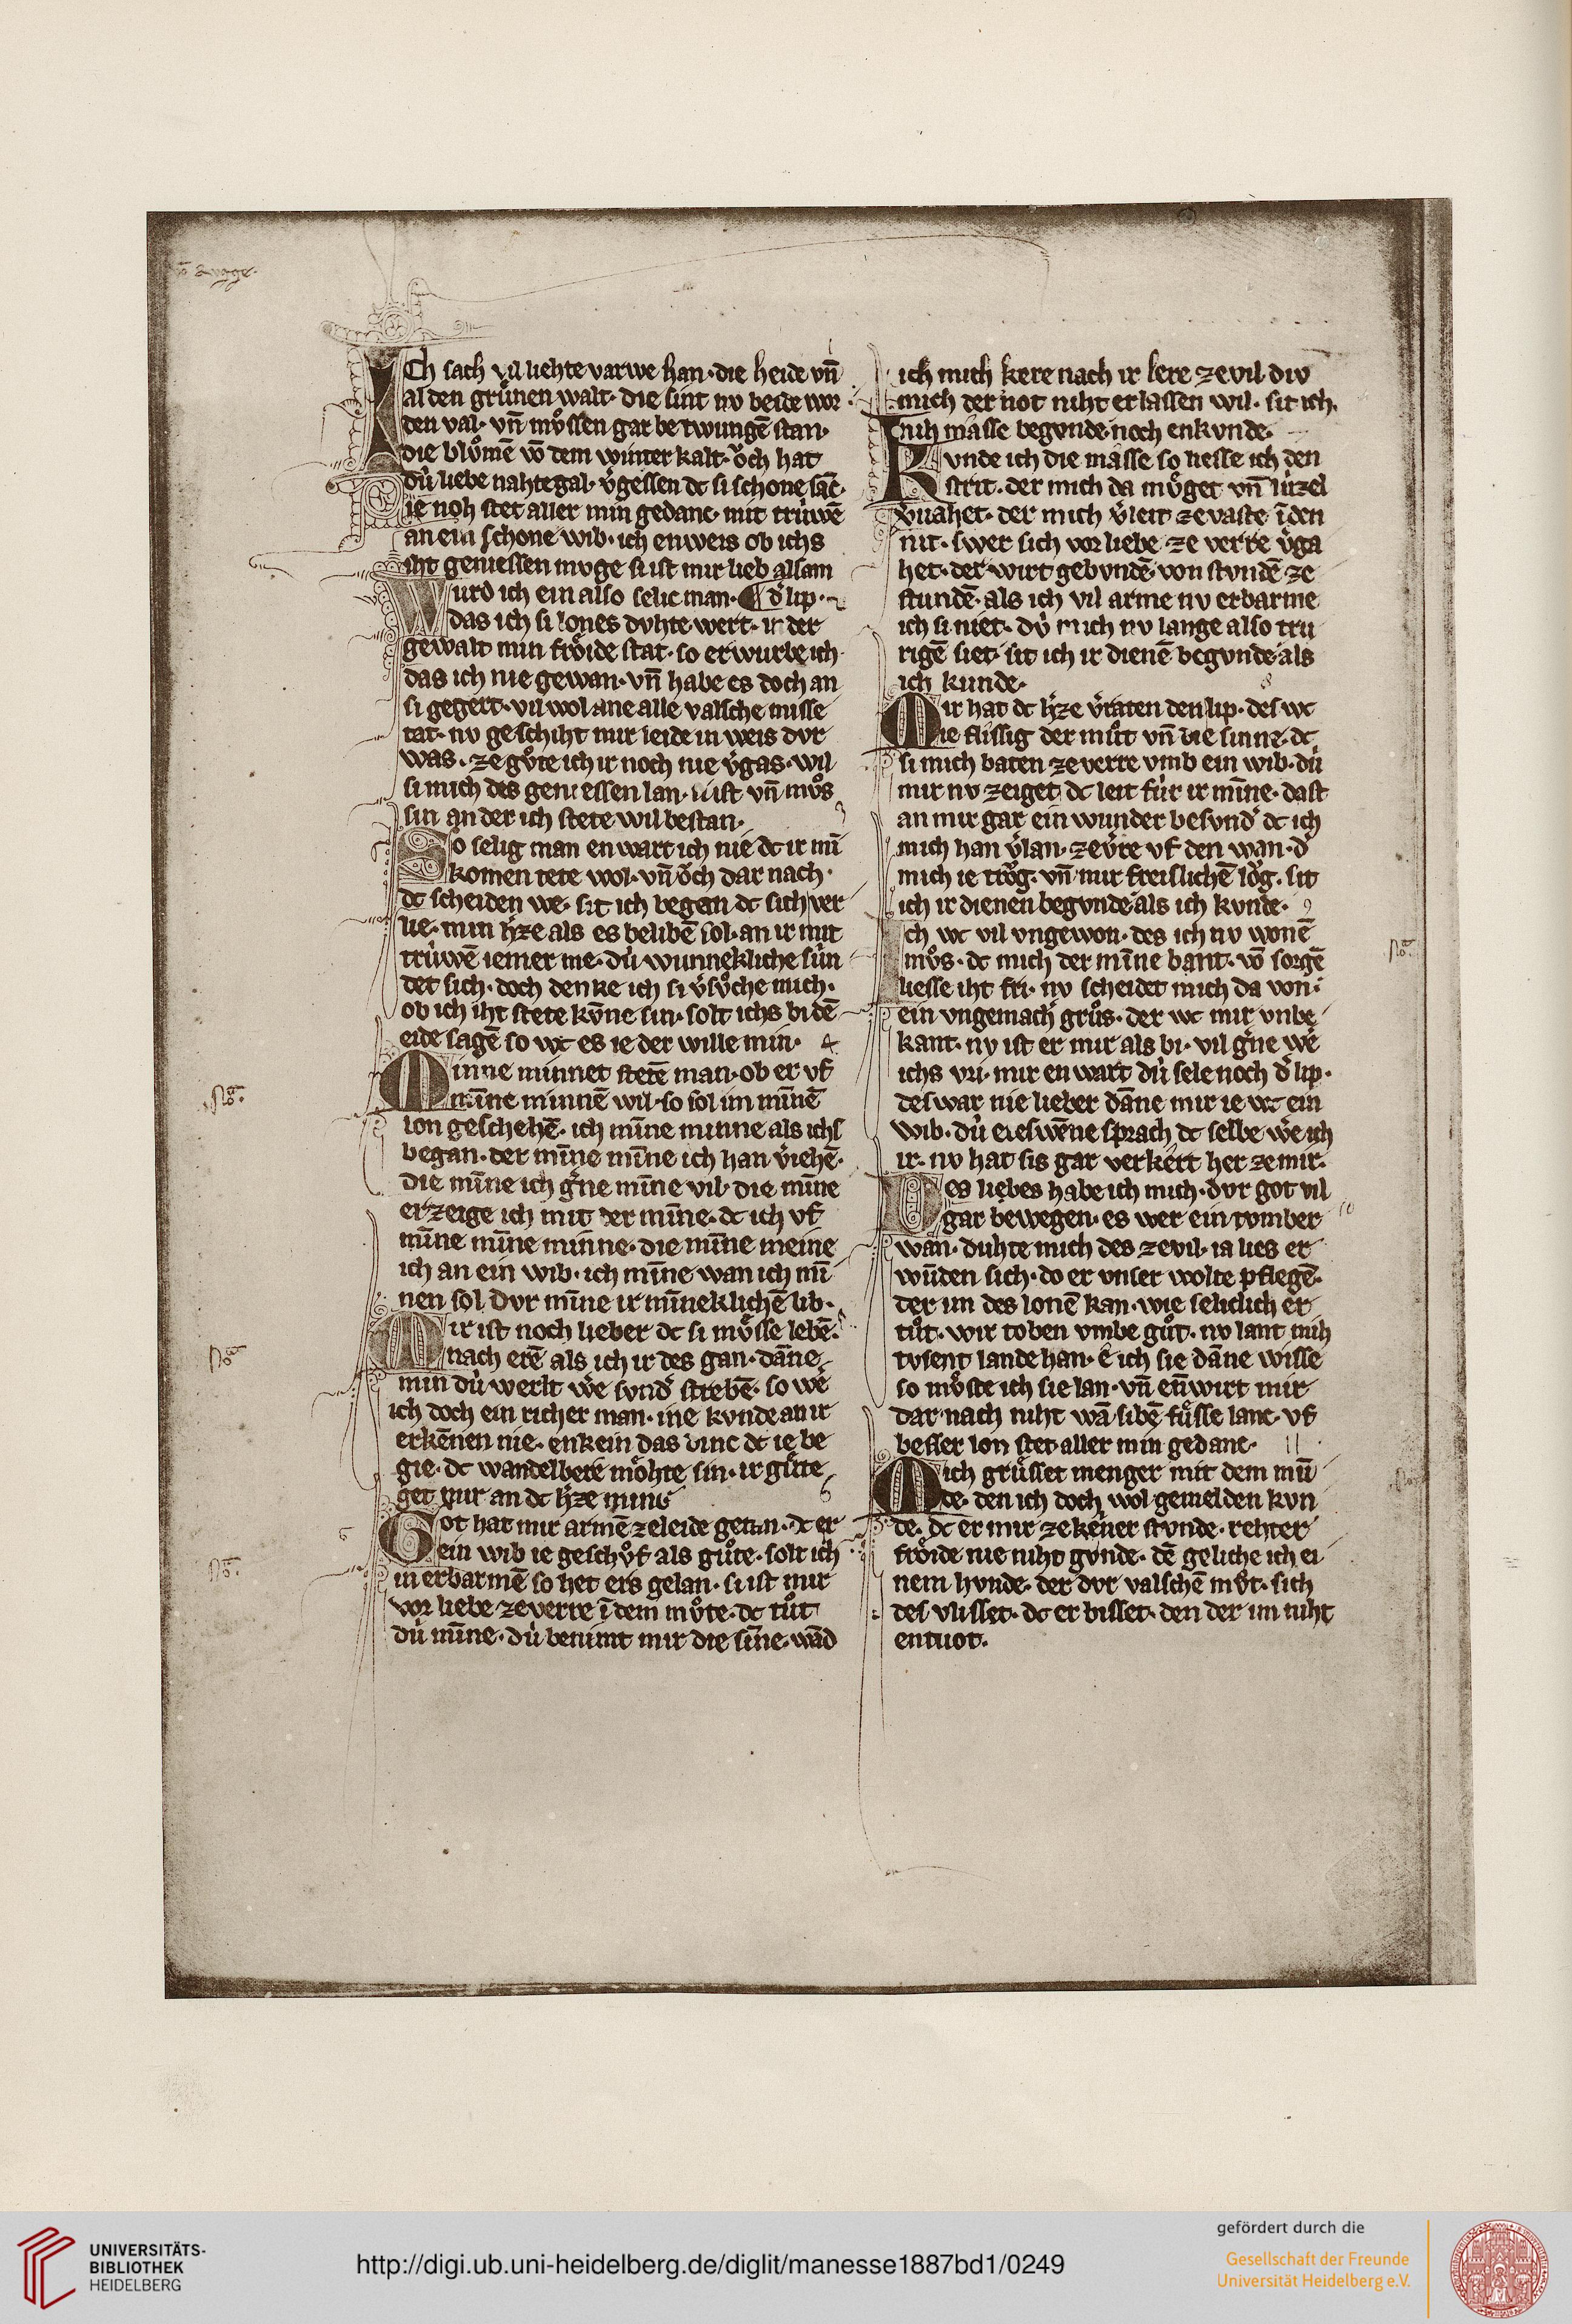 Ich sach vil liehte varwe han· die heide vn̄
al den grůnen walt· die sint nv beide wor
den val· vn̄ mv̊ssen gar betwungē stan·
die blůmē vō dem winter kalt· ǒch hat
dú liebe nahtegal· v̓gessen dc si schone sāc·
ie noh stet aller min gedanc· mit trúwē
an ein schone wib· ich enweis ob ichs
iht geniessen mvge si ist mir lieb alsam
Wurd ich ein also selic man· ¶ d̓ lip·
das ich si lones dvhte wert· ir der
gewalt min frǒide stat· so erwurbe ich
das ich nie gewan· vn̄ habe es doch an
si gegert· vil wol ane alle valsche misse
tat· nv geschiht mir leide in weis dvr
was· ze gv̊te ich ir noch nie v̓gas· wil
si mich des geniessen lan· si ist vn̄ mv̊s
sin an der ich stete wil bestan·
So selig man en wart ich nie dc ir mī
komen tete wol· vn̄ ǒch dar nach·
dc scheiden we· sit ich began dc sich ver
lie· min h̓ze als es belibē sol· an ir mit
trúwē iemer me· dú wunnekliche sún
det sich· doch denke ich si v̓sv̊che mich·
ob ich iht stete kv̄ne sin· solt ichs bi dē
eide sagē so wc es ie der wille min· 4
Minne minnet stetē man· ob er vf
minne minnē wil· so sol im minē
lon geschehē· ich mīne minne als ichs
began· der mīne mīne ich han v̓iehē·
die mīne ich g̓ne mīne vil· die mīne
erzeige ich mit der mīne· dc ich vf
mīne mīne minne· die mīne meine
ich an ein wib· ich mīne wan ich mī
nen sol dvr mīne ir mīneklichē lib·
Mir ist noch lieber dc si mv̊sse lebē·
nach erē als ich ir des gan· dāne
min dú werlt we̓ svnd̓ strebē· so we̓
ich doch ein richer man· ine kvnde an ir
erkēnen nie· enkein das dinc dc ie be
gie· dc wandelbere mǒhte sin· ir gůte
get mir an dc h̓ze min· 6
Got hat mir armē ze leide getan· dc er
ein wib ie geschv̊f als gůte· solt ich
in erbarmē so het ers gelan· si ist mir
vor liebe ze verre ī dem mv̊te· dc tůt
dú mīne· dú benimt mir die sīne· wād
ich mich kere nach ir lere ze vil div
mich der not niht erlassen wil· sit ich
nih masse begvnde noch enkvnde·
Kvnde ich die masse so liesse ich den
strit· der mich da mv̊get vn̄ lúzel
v̓vahet· der mich v̓leit ze vaste ī den
nit· swer sich vor liebe ze verre v̓ga
het· der wirt gebvndē· von stvndē ze
stundē· als ich vil arme nv erbarme
ich si niet· dú mich nv lange also tru
rigē siet· sit ich ir dienē begvnde als
ich kunde· 8
Mir hat dc h̓ze v̓raten den lip· des wc
ie flissig der můt vn̄ die sinne· dc
si mich baten ze verre vmb ein wib· dú
mir nv zeiget dc leit fúr ir mīne· dast
an mir gar ein wunder besvnd̓ dc ich
mich han v̓lan· ze v̓re vf den wan· d̓
mich ie trǒg· vn̄ mir freislichē lǒg· sit
ich ir dienen begvnde als ich kvnde· 9
Ich wc vil vngewon· des ich nv wonē
mv̊s· dc mich der mīne bant· vō sorgē
liesse iht fri· nv scheidet mich da von·
ein vngemach̓ grůs· der wc mir vnbe
kant· nv ist er mir als bi· vil g̓ne we̓
ichs vri· mir en wart dú sele noch d̓ lip·
des war nie lieber dāne mir ie wc ein
wib· dú eteswēne sprach dc selbe we̓ ich
ir· nv hat sis gar verkert her ze mir·
Des liebes habe ich mich· dvr got vil
gar bewegen· es wer ein tvmber 10
wan· duhte mich des ze vil· ia lies er
wūden sich· do er vnser wolte pflegē·
der im des lonē kan· wie seliclich er
tůt· wir toben vmbe gůt· nv lant mih
tvsent lande han· e̓ ich sie dāne wisse
so mv̊ste ich sie lan· vn̄ en̄ wirt mir
dar nach niht wā sibē fůsse lanc· vf
besser lon stet aller min gedanc· 11
Mich grůsset menger mit dem mū
de· den ich doch wol gemelden kvn
de· dc er mir ze kēner stvnde· rehter
frǒide nie niht gvnde· dē geliche ich ei
nem hvnde· der dvr valschē mv̊t· sich
des vlisset· dc er bisset· den der im niht
entuot·
No̅
No̅
No̅
No̅
UNIVERSITÄTS-
BIBLIOTHEK
HEIDELBERG
http://digi.ub.uni-heidelberg.de/diglit/manesse1887bd1/0249
gefördert durch die
Gesellschaft der Freunde
Universität Heidelberg e.V.